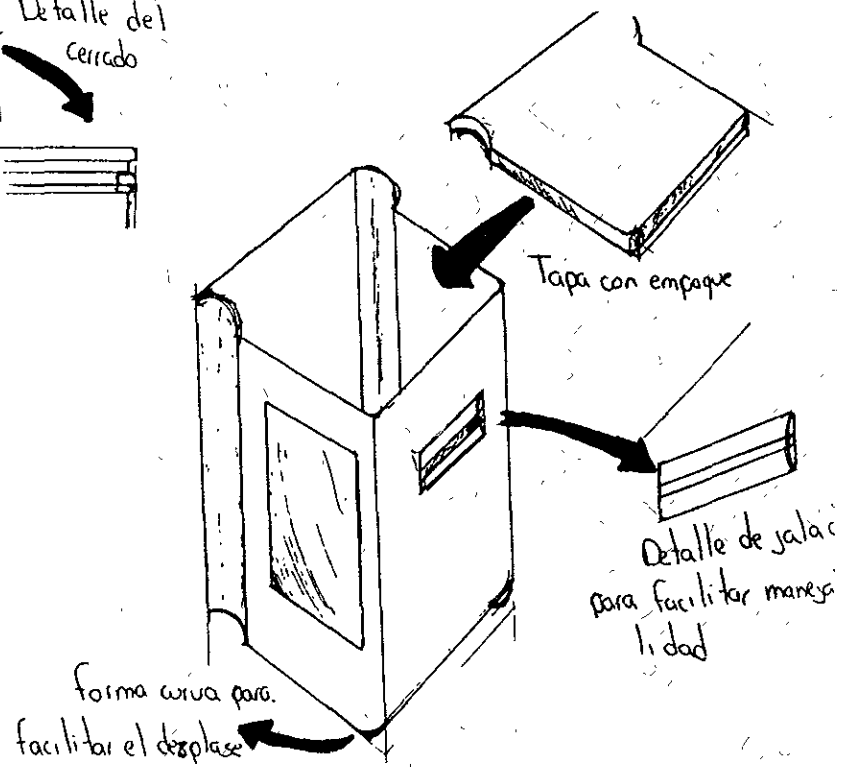 Detalle del
cerrado
Tapa con empaque
Detalle de jalac
para facilitar maneja
lidad
forma curva para.
facilitar el desplase